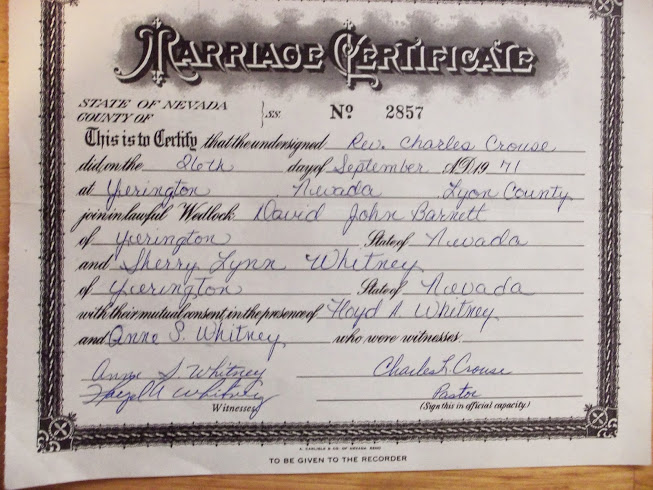 MARRIAGE CERTIFICATE
STATE OF NEVADA
COUNTY OF } SS. No 2857
This is to Certify that the undersigned Rev. Charles Crouse
did on the 26th day of September A.D. 19 71
at Yerington Nevada Lyon County
join in lawful Wedlock David John Barnett
of Yerington State of Nevada
and Sherry Lynn Whitney
of Yerington State of Nevada
with their mutual consent in the presence of Floyd A Whitney
and Anne S. Whitney who were witnesses.
Anne S. Whitney Charles L Crouse
Floyd A Whitney Pastor
Witnesses (Sign this in official capacity.)
A. CARLISLE & CO. OF NEVADA RENO
TO BE GIVEN TO THE RECORDER